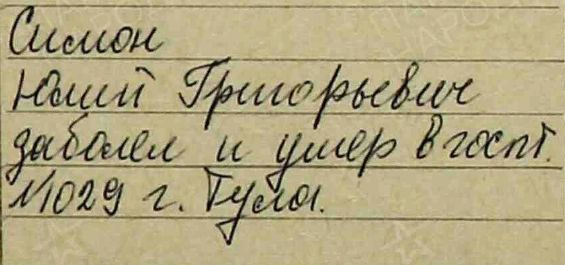 Симон
Юлий Григорьевич
заболел и умер в госпт.
№1029 г. Тула.